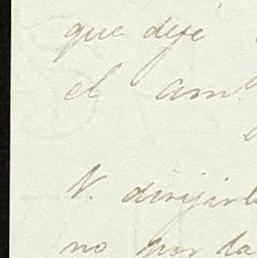 que dejé
el am.º
V. dirijirle
no por la